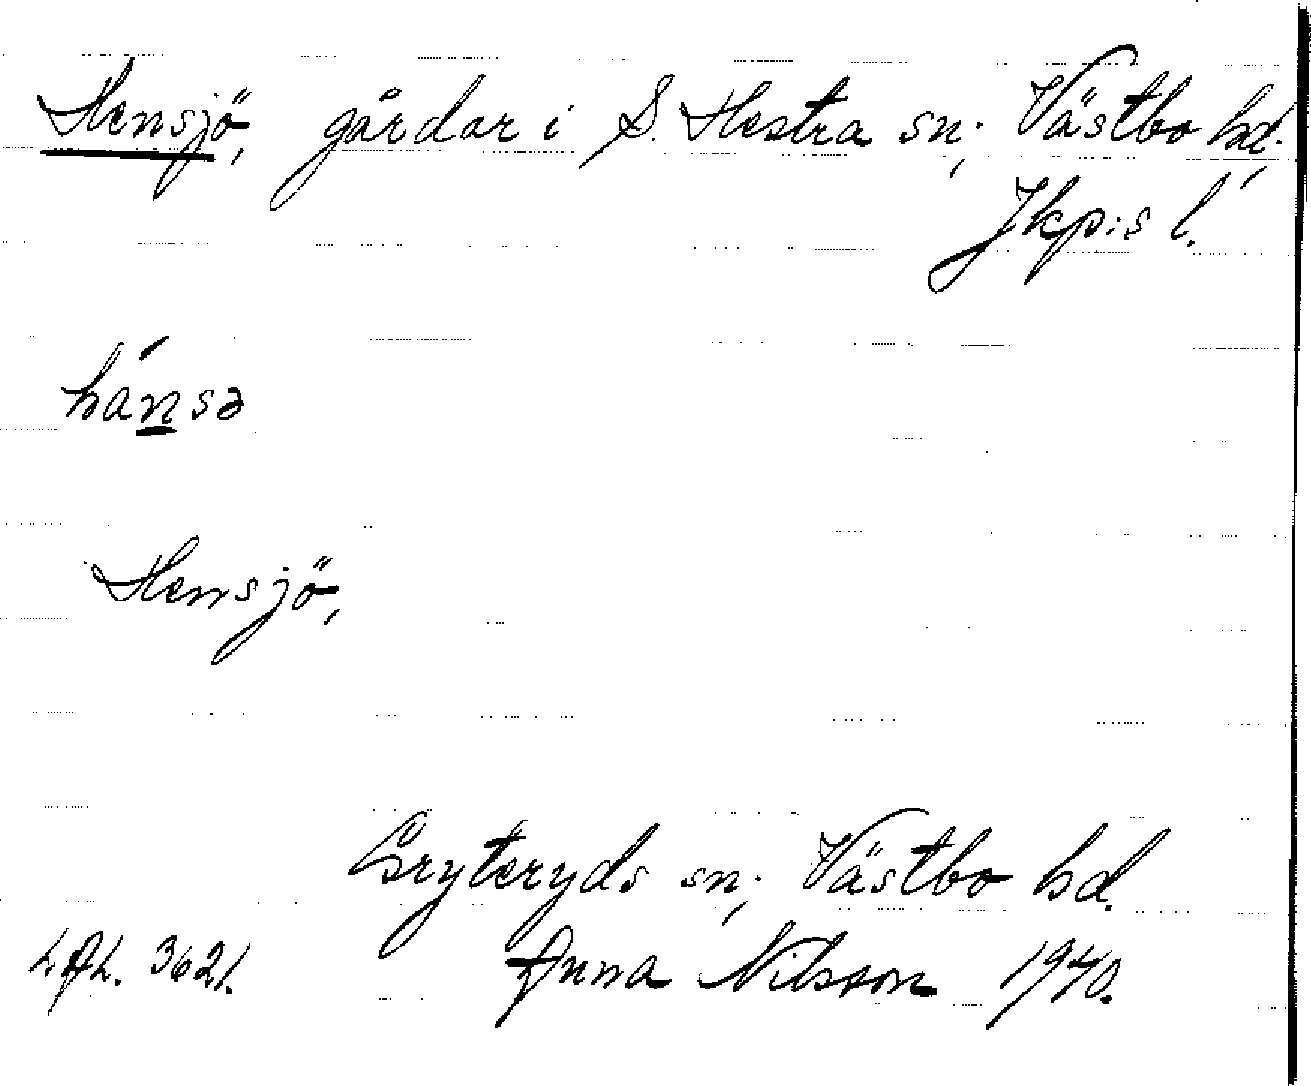 Hensjö, gårdar i S. Hestra sn; Västbo hd.
Jkp:s l.
hánsə
Hensjö,
Gryteryds sn; Västbo hd.
L.A.L. 3621. Anna Nilsson 1940.